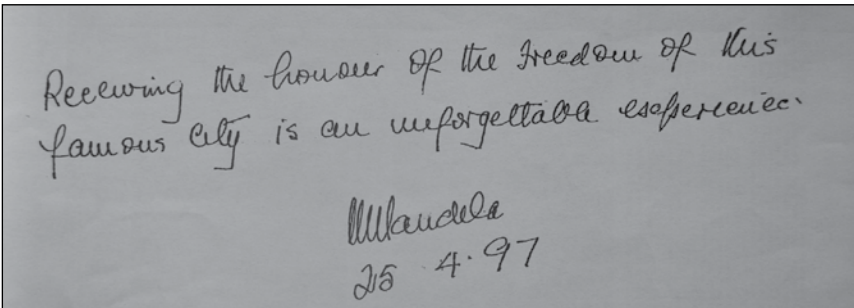 Receiving the honour of the Freedom of this
famous City is an unforgettable experience.
NMandela
25.4.97